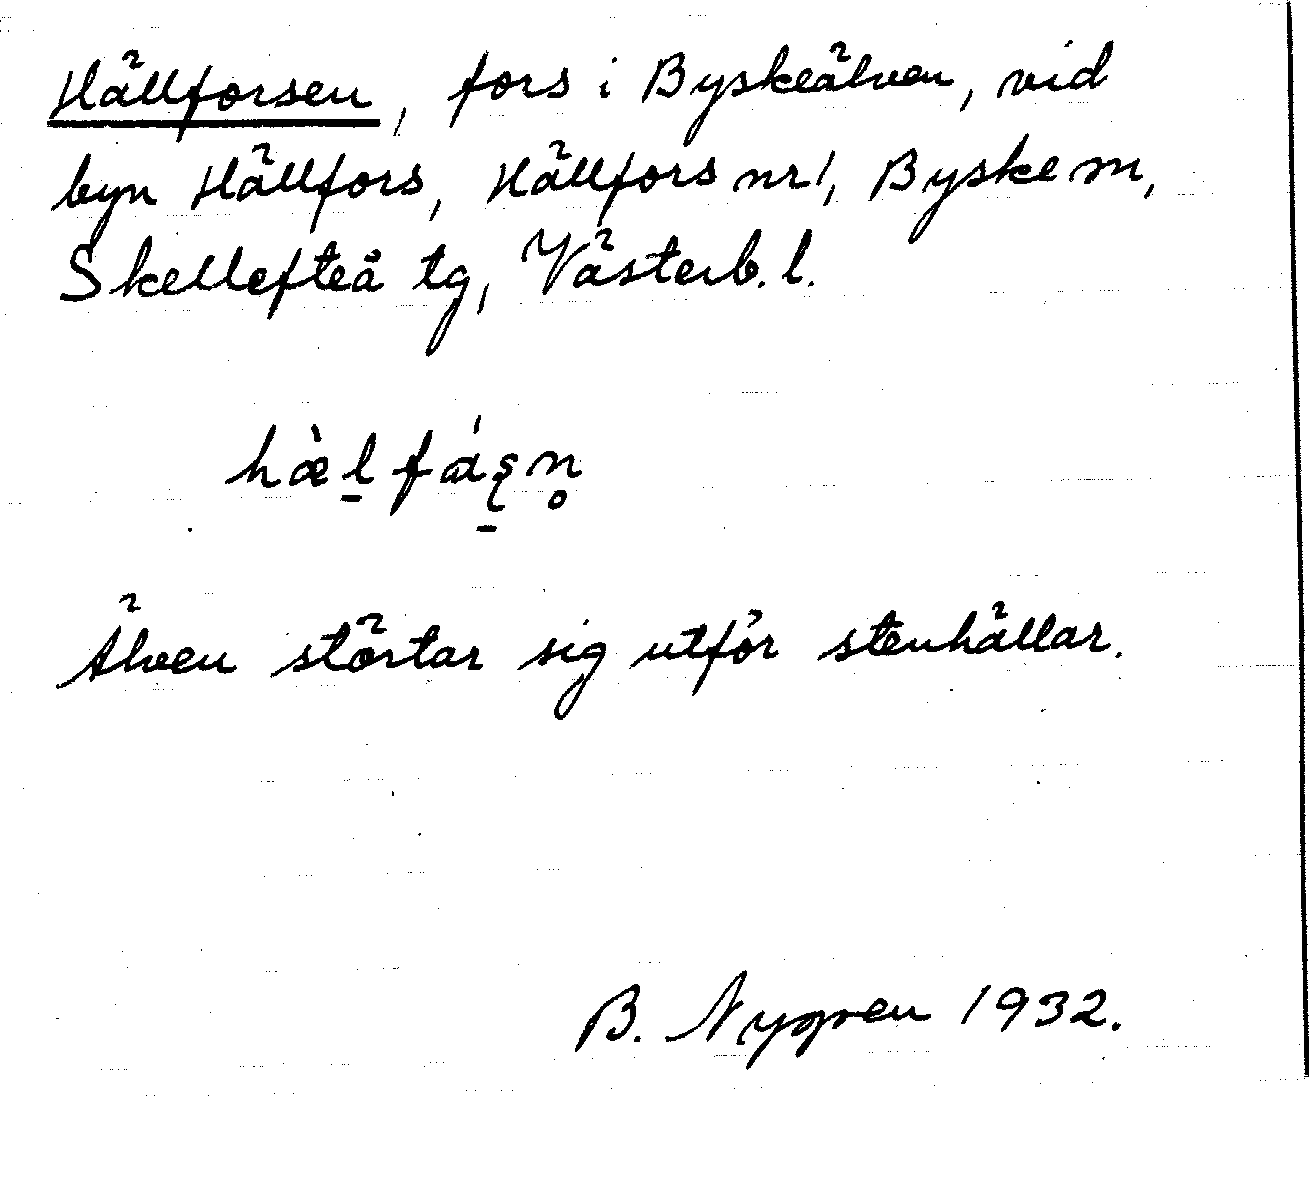 Hällforsen, fors i Byskeälven, vid
byn Hällfors, Hällfors nr 1, Byske sn,
Skellefteå tg, Västerb. l.
hæ̀l̠fáʂn̥
Älven störtar sig utför stenhällar.
B. Nygren 1932.